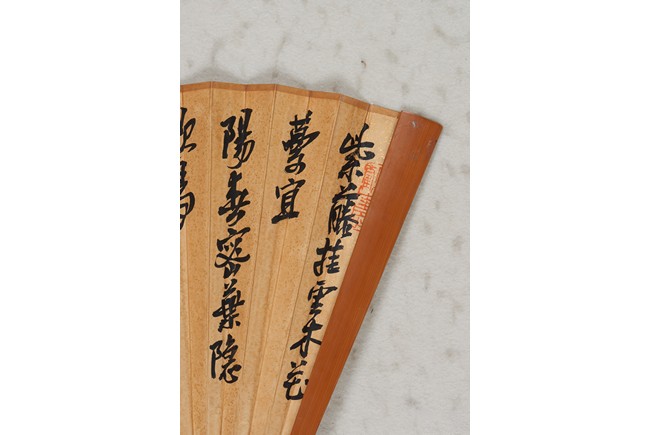 紫藤挂雲木花
蔓宜
陽春密葉隱
歌鳥